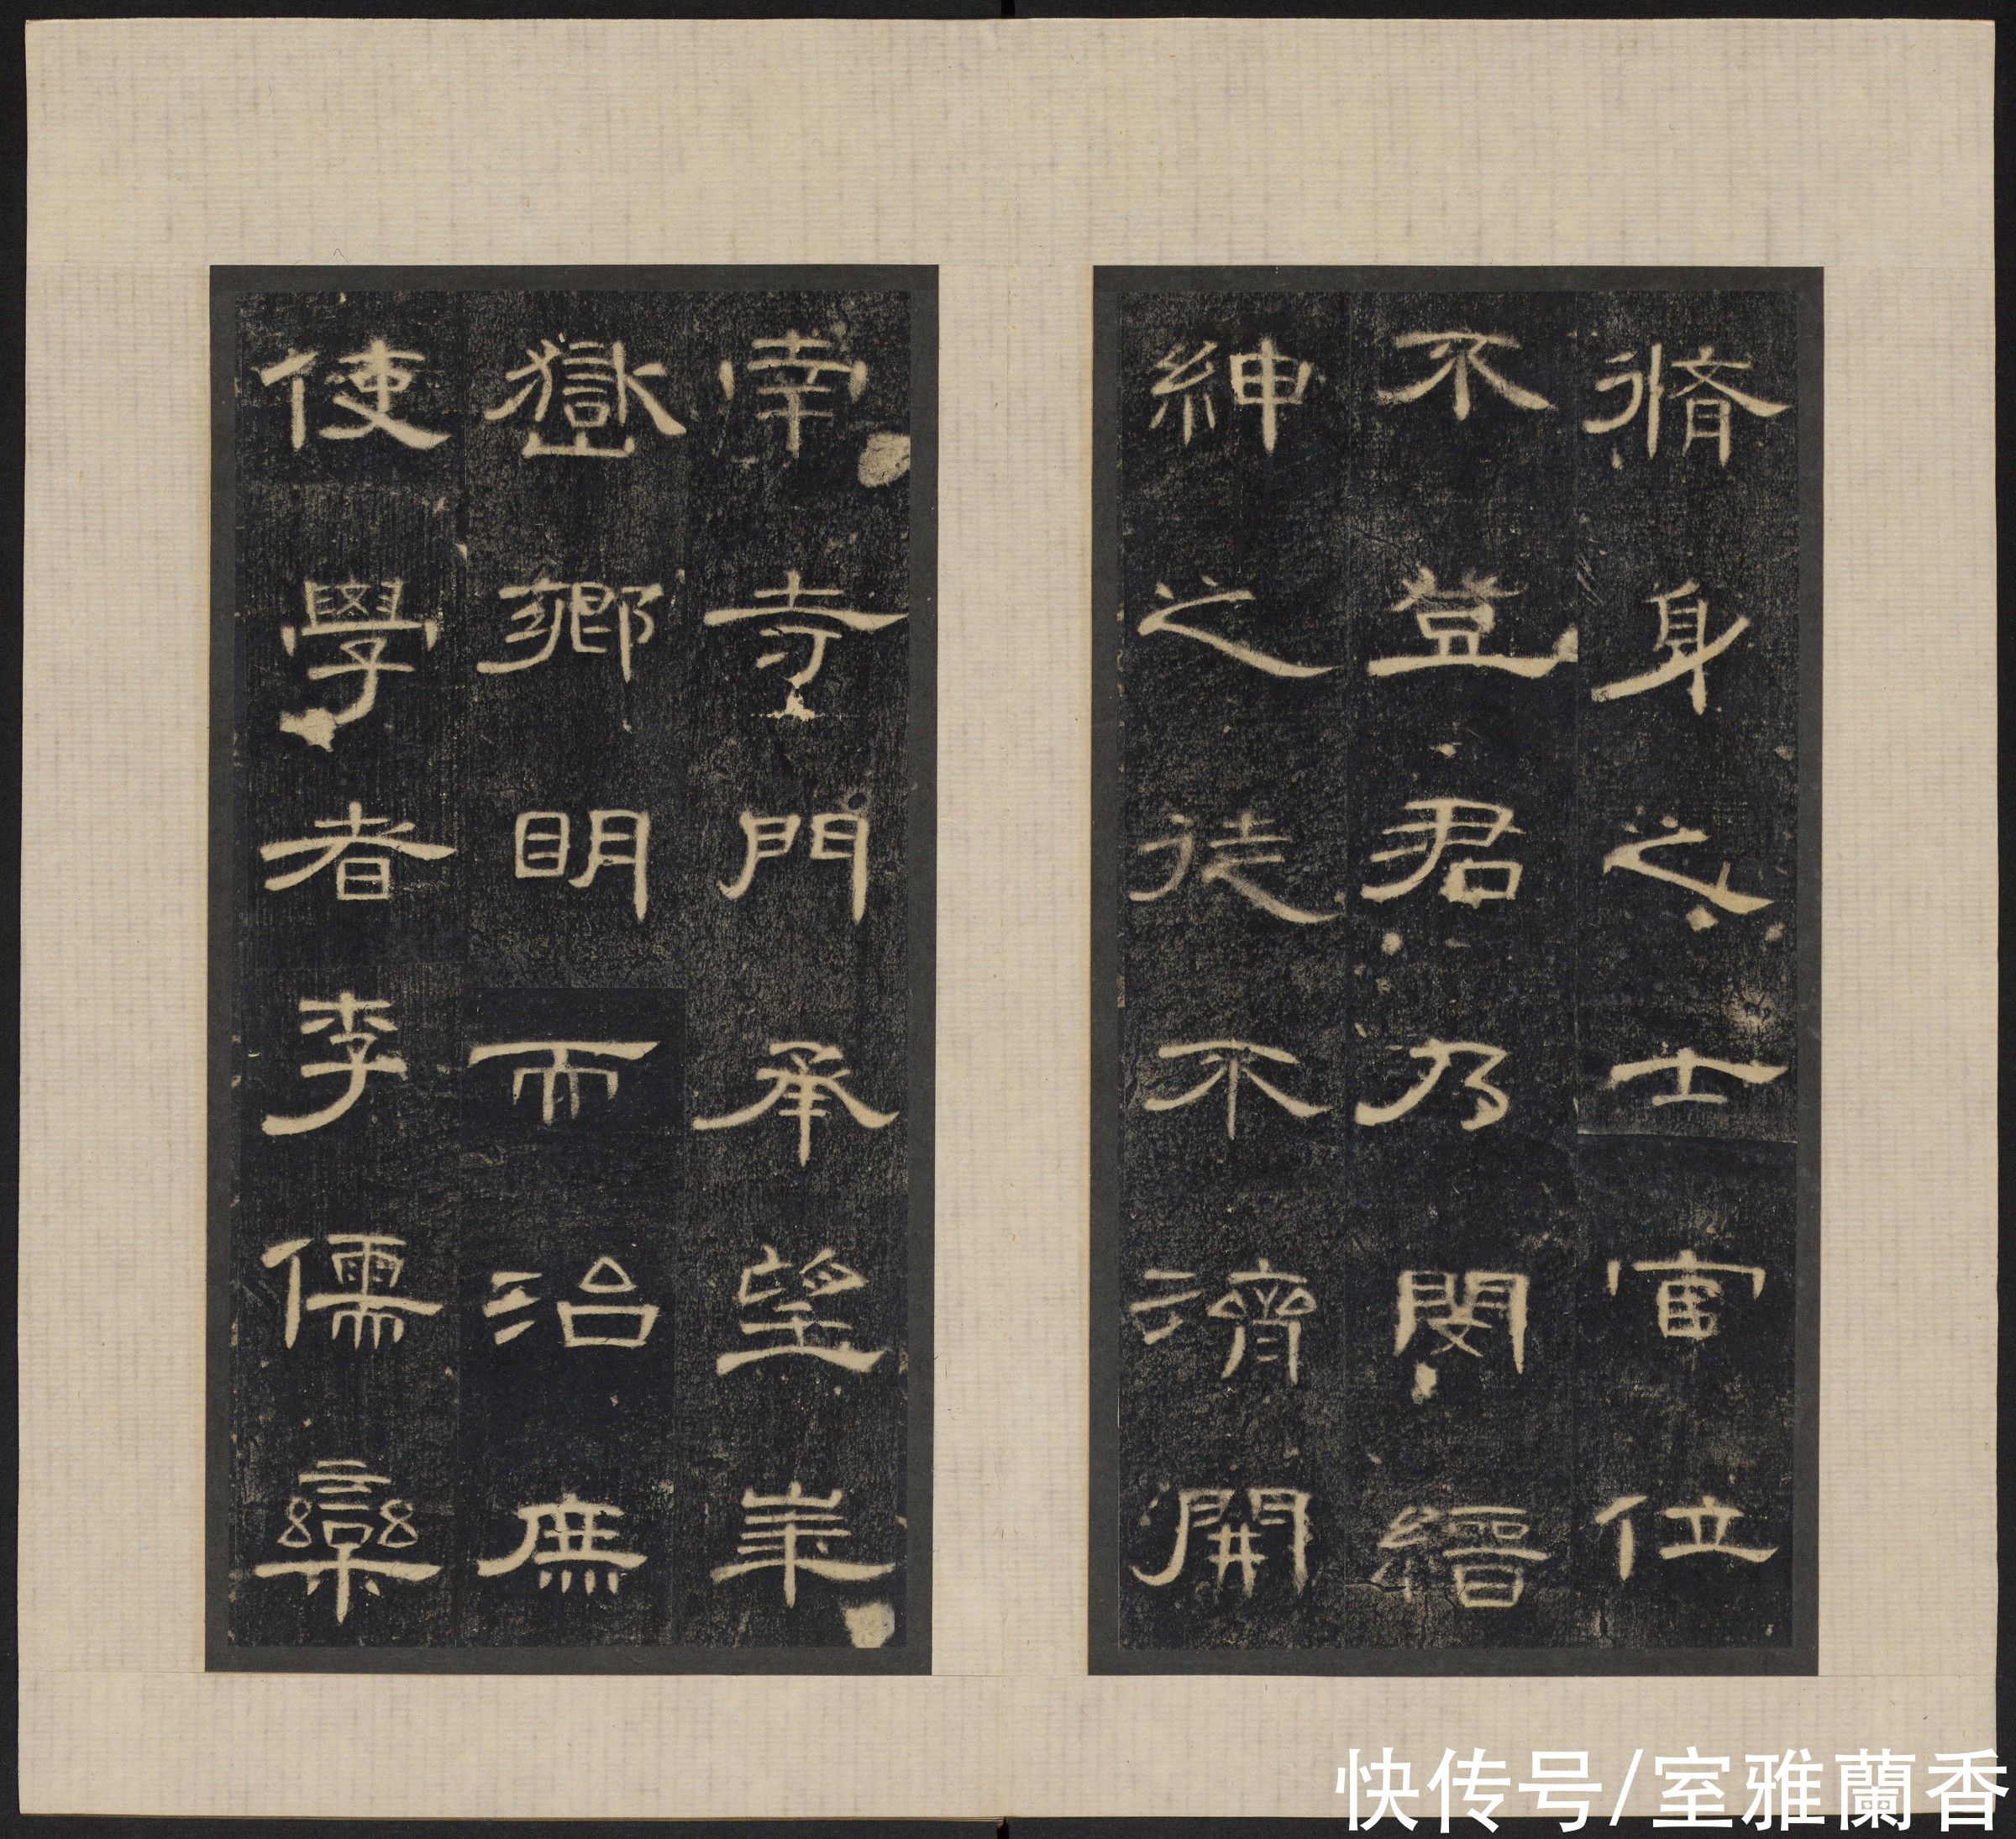 脩身之士官位
不登君乃閔縉
紳之徒不濟開
南寺門承望華
嶽鄉明而治庶
使學者李儒欒
快传号/室雅蘭香